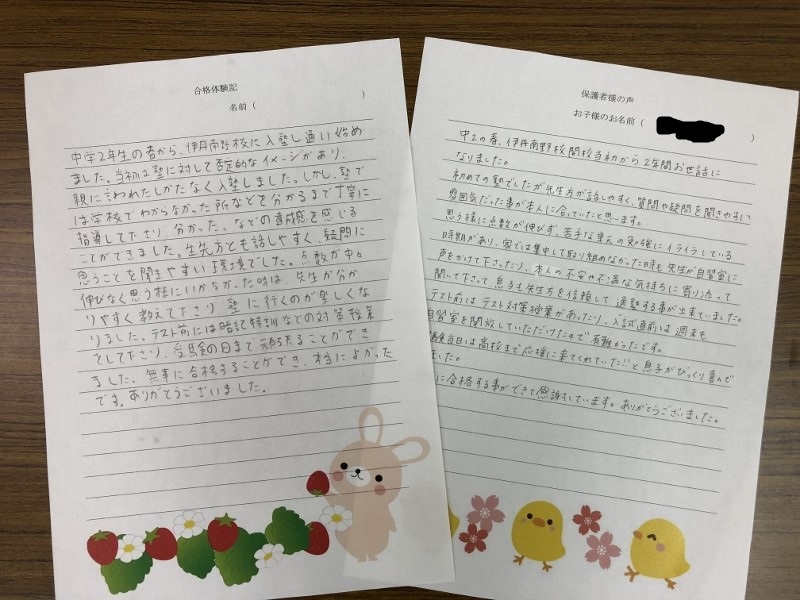 合格体験記
名前（　　　　　　　）
中学2年生の春から、伊丹南野校に入塾し通い始め
ました。当初は塾に対して否定的なイメージがあり、
親に言われしかたなく入塾しました。しかし、塾で
は学校でわからなかった所などを分かるまで丁寧に
指導して下さり、分かった、などの達成感を感じる
ことができました。先生方とも話しやすく、疑問に
思うことを聞きやすい環境でした。点数が中々
伸びなく思う様にいかなかった時は、先生が分か
りやすく教えて下さり、塾に行くのが楽しくな
りました。テスト前には暗記特訓などの対策授業
をして下さり、受験の日まで頑張ることができ
ました。無事に合格することができ、本当によかった
です。ありがとうございました。
保護者様の声
お子様のお名前（　　　　　　　）
中2の春、伊丹南野校開校当初から2年間お世話に
なりました。
初めての塾でしたが先生方が話しやすく、質問や疑問を聞きやすい
雰囲気だった事が本人に合っていたと思います。
思う様に点数が伸びず、苦手な単元の勉強にイライラしている
時期があり、家では集中して取り組めなかった時も先生が自習室に
声をかけて下さったり、本人の不安や不満な気持ちに寄り添って
聞して下さって息子も先生方を信頼して通塾する事が出来ていました。
テスト前はテスト対策授業があったり、入試直前は週末も
自習室を開放していただけたので有難かったです。
験当日は高校まで応援に来てくれていたことを息子がびっくり喜んで
ました。
に合格する事ができて感謝しています。ありがとうございました。